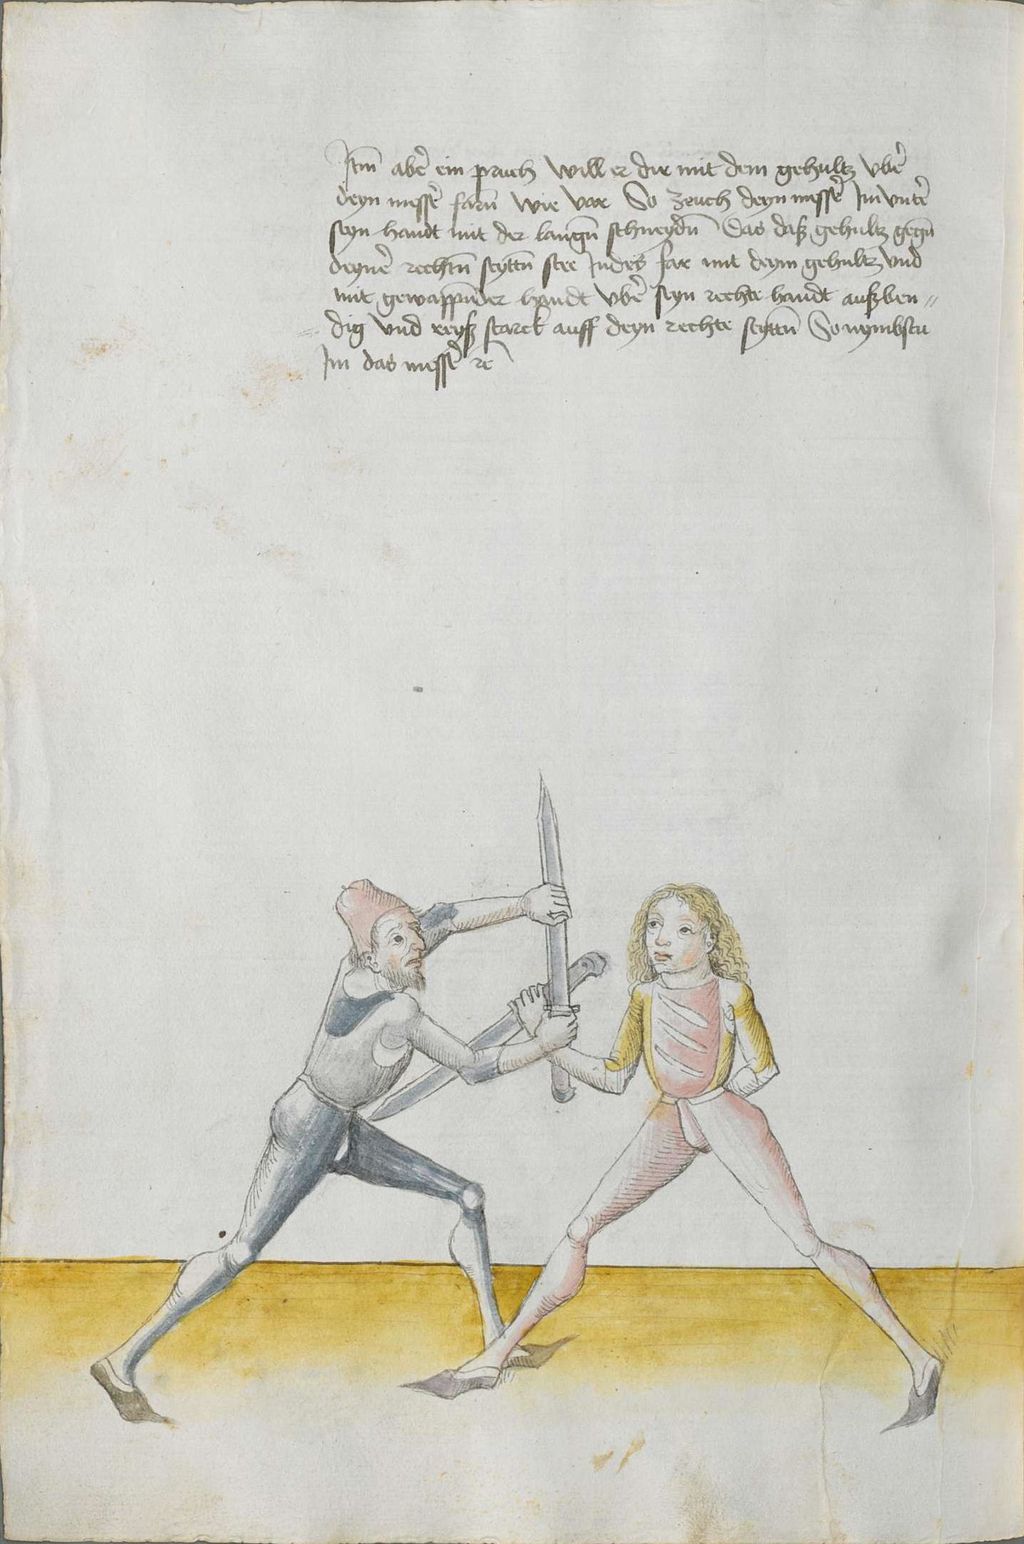 Itm̄ abe᷑ ein pruch Will er dir mit dem gehultz vbe᷑
deyn messe᷑ farn̄ Wie vor So zeuch deyn messe᷑ Im vnte᷑
seyn handt mit der langn̄ schneydn̄ Das daß gehultz gegn̄
deyne᷑ rechtn̄ seyttn̄ stee Indes far mit deym gehultz vnd
mit gewappender handt vbe᷑ seyn rechte handt außben„
dig vnd reyß starck auff deyn rechte seyttn̄ So nymbstu
Im das messe᷑ rc̄